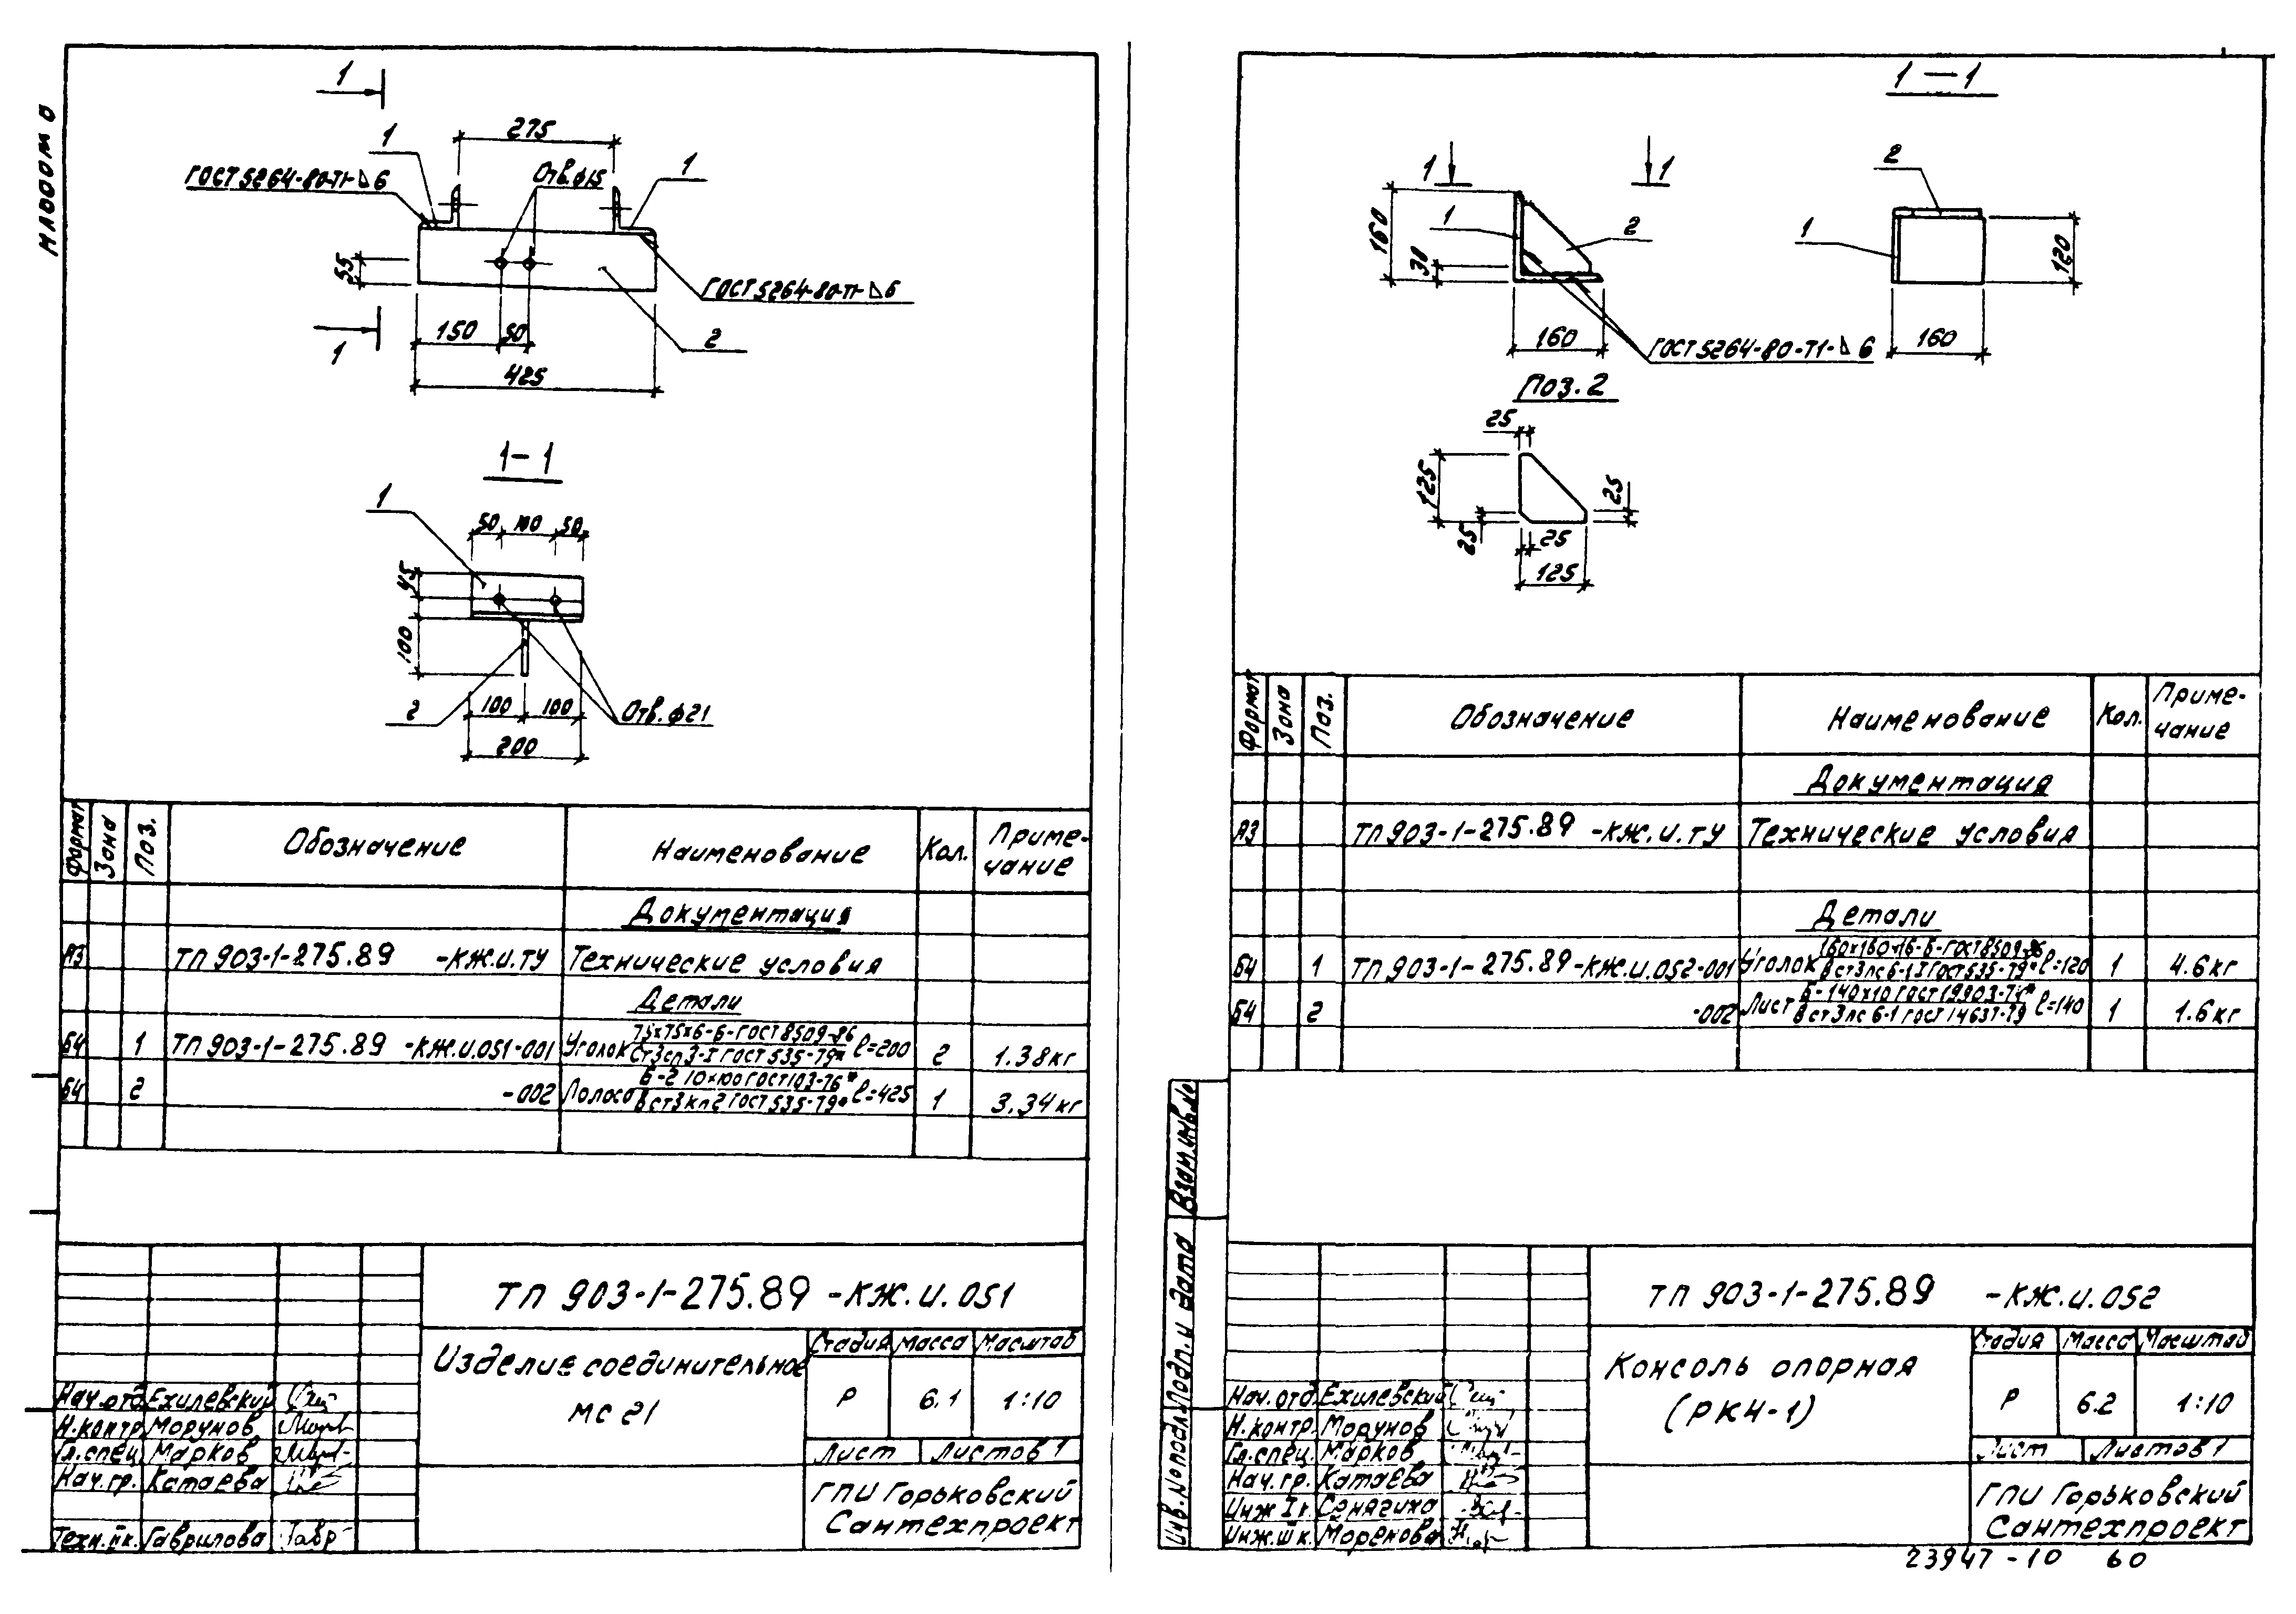 1
275
1
1
ГОСТ 5264-80-Т1-⊿6
Отв.ф15
55
ГОСТ 5264-80-Т1-⊿6
150
50
2
1
425
1-1
1
50 100 50
45
100
2
100 100
Отв.ф21
200
Формат Зона Поз. Обозначение Наименование Кол. Приме-
чание
Документация
А3 ТП 903-1-275.89 -КЖ.И.ТУ Технические условия
Детали
БЧ 1 ТП 903-1-275.89 -КЖ.И.051-001 Уголок 75х75х6-Б-ГОСТ 8509-86 ℓ=200 2 1.38кг
Ст3сп3-I ГОСТ 535-79*
БЧ 2 -002 Полоса Б-2 10х100 ГОСТ 103-76* ℓ=425 1 3.34кг
Вст3кп2 ГОСТ 535-79*
ТП 903-1-275.89 -КЖ.И.051
Изделие соединительное
МС 21
Стадия Масса Масштаб
Р 6.1 1:10
Лист Листов 1
ГПИ Горьковский
Сантехпроект
Нач.отд. Ехилевский
Н.контр. Морунов
Гл.спец. Марков
Нач.гр. Катаева
Техн.IIк. Гаврилова
1-1
1 1
160
30
1
2
160
ГОСТ 5264-80-Т1-⊿6
2
1
120
160
Поз.2
25
125
25
25
25
125
Формат Зона Поз. Обозначение Наименование Кол. Приме-
чание
Документация
А3 ТП 903-1-275.89 -КЖ.И.ТУ Технические условия
Детали
БЧ 1 ТП 903-1-275.89-КЖ.И.052-001 Уголок 160х160х16-Б-ГОСТ 8509-86 ℓ=120 1 4.6кг
Вст3пс6-1-I ГОСТ 535-79*
БЧ 2 -002 Лист Б-140х10 ГОСТ 19903-74* ℓ=140 1 1.6кг
Вст3пс6-1 ГОСТ 14637-79
Взам.инв.№
Подп. и дата
Инв.№подл.
ТП 903-1-275.89 -КЖ.И.052
Консоль опорная
(РКН-1)
Стадия Масса Масштаб
Р 6.2 1:10
Лист Листов 1
ГПИ Горьковский
Сантехпроект
Нач.отд. Ехилевский
Н.контр. Морунов
Гл.спец. Марков
Нач.гр. Катаева
Инж Iк. Синягина
Инж.IIIк. Моренова
23947-10 60